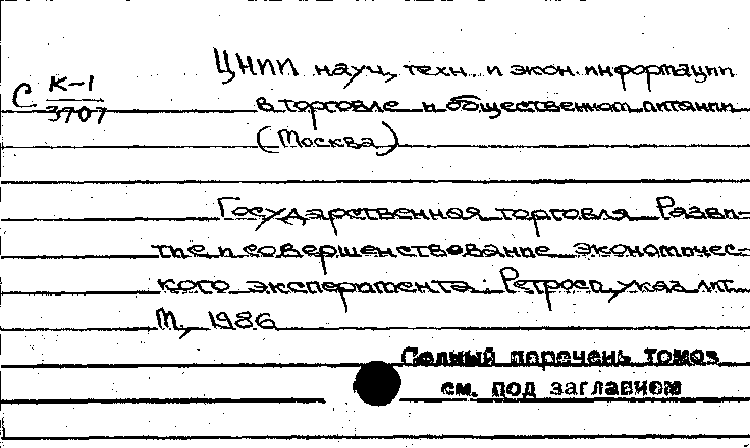 ЦНИИ науч., техн. и экон. информации
С К-1
3707
в торговле и общественном питании
(Москва)
Государственная торговля. Разви-
тие и совершенствование экономичес-
кого эксперимента: Ретросп. указ. лит.
М., 1986
Полный перечень томов
см. под заглавием